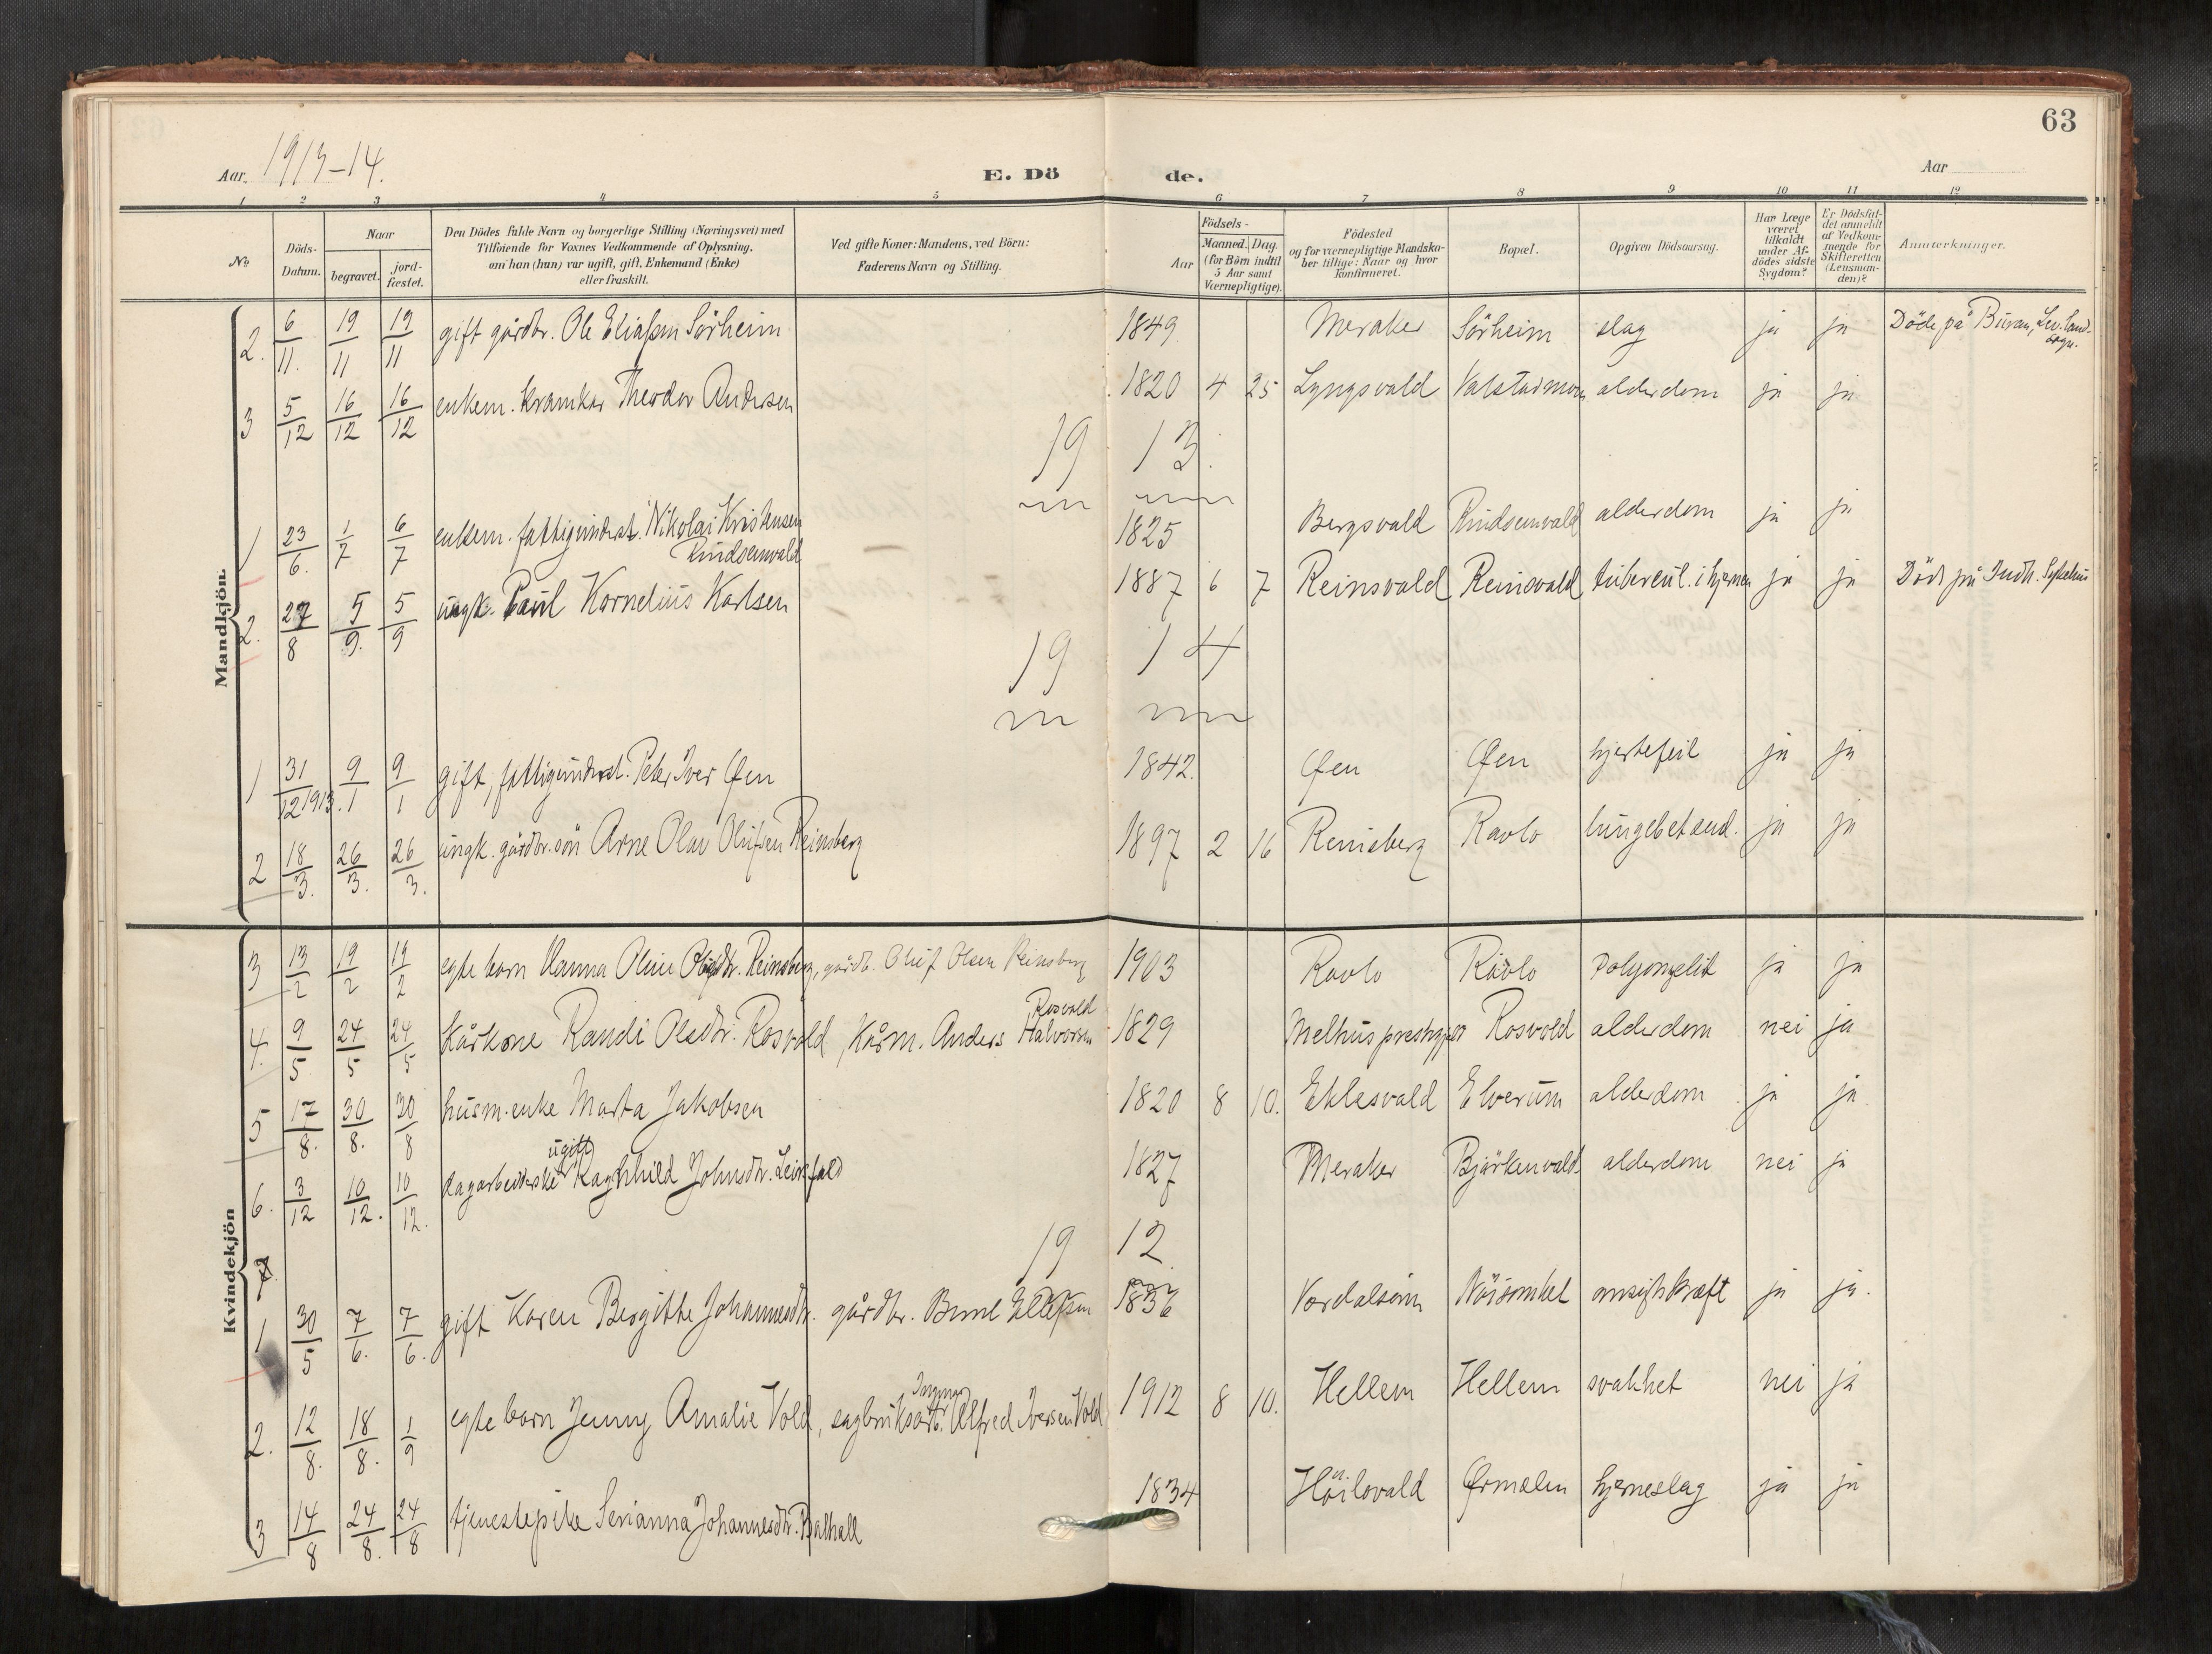 63
Aar 1913-14.
E. Dö de.
Aar
1 2 3 4 5 6 7 8 9 10 11 12
No
Döds-Datum.
Naar
begravet. jord-fæstet.
Den Dödes fulde Navn og borgerlige Stilling (Næringsvei) med
Tilföiende for Voxnes Vedkommende af Oplysning,
om han (hun) var ugift, gift, Enkemand (Enke)
eller fraskilt.
Ved gifte Koner: Mandens, ved Börn:
Faderens Navn og Stilling.
Födsels-
Aar
Maaned. Dag.
(for Börn indtil
5 Aar samt
Værnepligtige).
Födested
og for værnepligtige Mandska-
ber tillige: Naar og hvor
konfirmeret.
Bopæl.
Opgiven Dödsaarsag.
Har Læge
været
tilkaldt
under Af-
dödes sidste
Sygdom?
Er Dödsfal-
det anmeldt
af Vedkom-
mende for
Skifteretten
(Lensman-
den)?
Anmærkninger.
Mandkjön.
2. 6/11. 19/11 19/11 gift gårdbr. Ole Eliassen Sörheim 1849. Meraker Sörheim slag ja ja Döde på Buran, Lev. land-
sogn.
3 5/12 16/12 16/12 enkem. kramkar Theodor Andersen 1820 4 25 Lyngsvald Valstadmoen alderdom ja ja
19 13.
1 23/6. 1/7 6/7 enkem. fattigunderst. Nikolai Kristensen 1825 Bergsvald Rindsemvald alderdom ja ja
Rindsemvald
2. 27/8 5/9. 5/9 ungk. Paul Kornelius Karlsen 1887 6 7 Reinsvald Reinsvald tuberkul. i hjernen ja ja Död på Indh. Sykehus
19 14
1 31/12 1913. 9/1 9/1 gift, fattigunderst. Peter Iver Øen 1842. Øen Øen hjertefeil ja ja
2 18/3. 26/3. 26/3. ungk. gårdbr. sön Arne Olav Olufsen Reinsberg 1897 2 16 Reinsberg Ravlo lungebetænd. ja ja
Kvindekjön
3 13/2 19/2 19/2 egte barn Hanna Oline Olufsdtr. Reinsberg, gårdb. Oluf Olsen Reinsberg 1903 Ravlo Ravlo polyomyelit ja ja
Rosvold
4. 9/5. 24/5 24/5 Kårkone Randi Olsdtr. Rosvold, Kårm. Anders Halvorsen 1829 Melhus Rosvold alderdom nei ja
5 17/8. 30/8. 30/8 husm. enke Marta Jakobsen 1820 8 10. Eklesvald Elverum alderdom ja ja
ugift
6. 3/12 10/12. 10/12. dagarbeiderske Ragnhild Johnsdtr. Leirsfald 1827 Meraker Björkenvald alderdom nei ja
19 12
7.
1 30/5 7/6. 7/6. gift Karen Bergitte Johannesdtr. gårdbr. 1836 Værdalsöra ja ja.
Ingmar
2. 12/8. 18/8. 1/9 egte barn Jenny Amalie Vold, sagbruksarb. Alfred Iversen Vold 1912 8 10. Hellem Hellem svakhet nei ja
3 14/8 24/8. 24/8 tjenestepike Serianna Johannesdtr. Balhall 1834 Höilovald Ørmelen hjerneslag ja ja